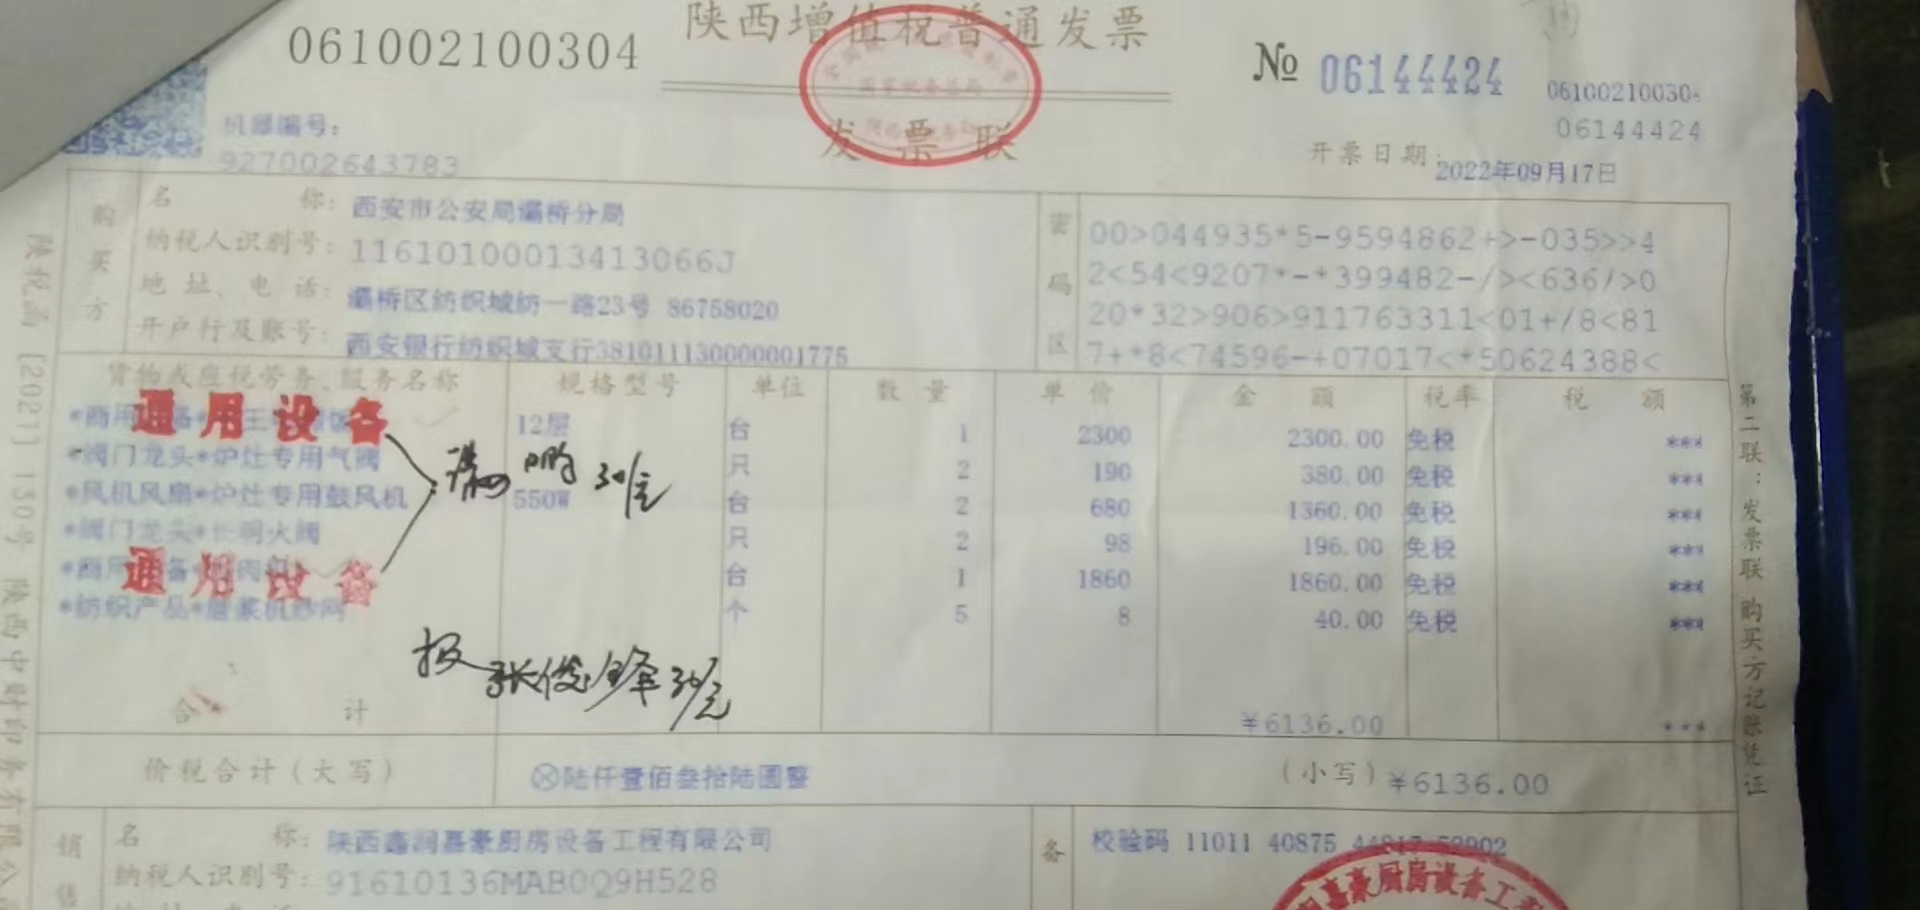 陕西增值税普通发票
061002100304
发票联
国家税务总局
№ 06144424
061002100304
06144424
机器编号:
927002643783
开票日期:
2022年09月17日
购买方
名称: 西安市公安局灞桥分局
纳税人识别号: 11610100013413066J
地址、电话: 灞桥区纺织城纺一路23号 86758020
开户行及账号: 西安银行纺织城支行381011130000001775
密码区
00>044935*5-9594862+>-035>>4
2<54<9207*-*399482-/><636/>0
20*32>906>911763311<01+/8<81
7+*8<74596-+07017<*50624388<
货物或应税劳务、服务名称 规格型号 单位 数量 单价 金额 税率 税额
通用设备 12层 台 1 2300 2300.00 免税 ***
*阀门龙头*炉灶专用气阀 只 2 190 380.00 免税 ***
*风机风扇*炉灶专用鼓风机 550W 台 2 680 1360.00 免税 ***
*阀门龙头*长明火阀 只 2 98 196.00 免税 ***
通用设备 台 1 1860 1860.00 免税 ***
*纺织产品*磨浆机纱网 个 5 8 40.00 免税 ***
报 张俊锋
合计 ¥6136.00 ***
价税合计(大写) ⊗陆仟壹佰叁拾陆圆整 (小写) ¥6136.00
销售
名称: 陕西鑫润嘉豪厨房设备工程有限公司
纳税人识别号: 91610136MAB0Q9H528
备
校验码 11011 40875
嘉豪厨房设备工程
陕税函[2021]130号 陕西中财印务有限公
第二联:发票联 购买方记账凭证